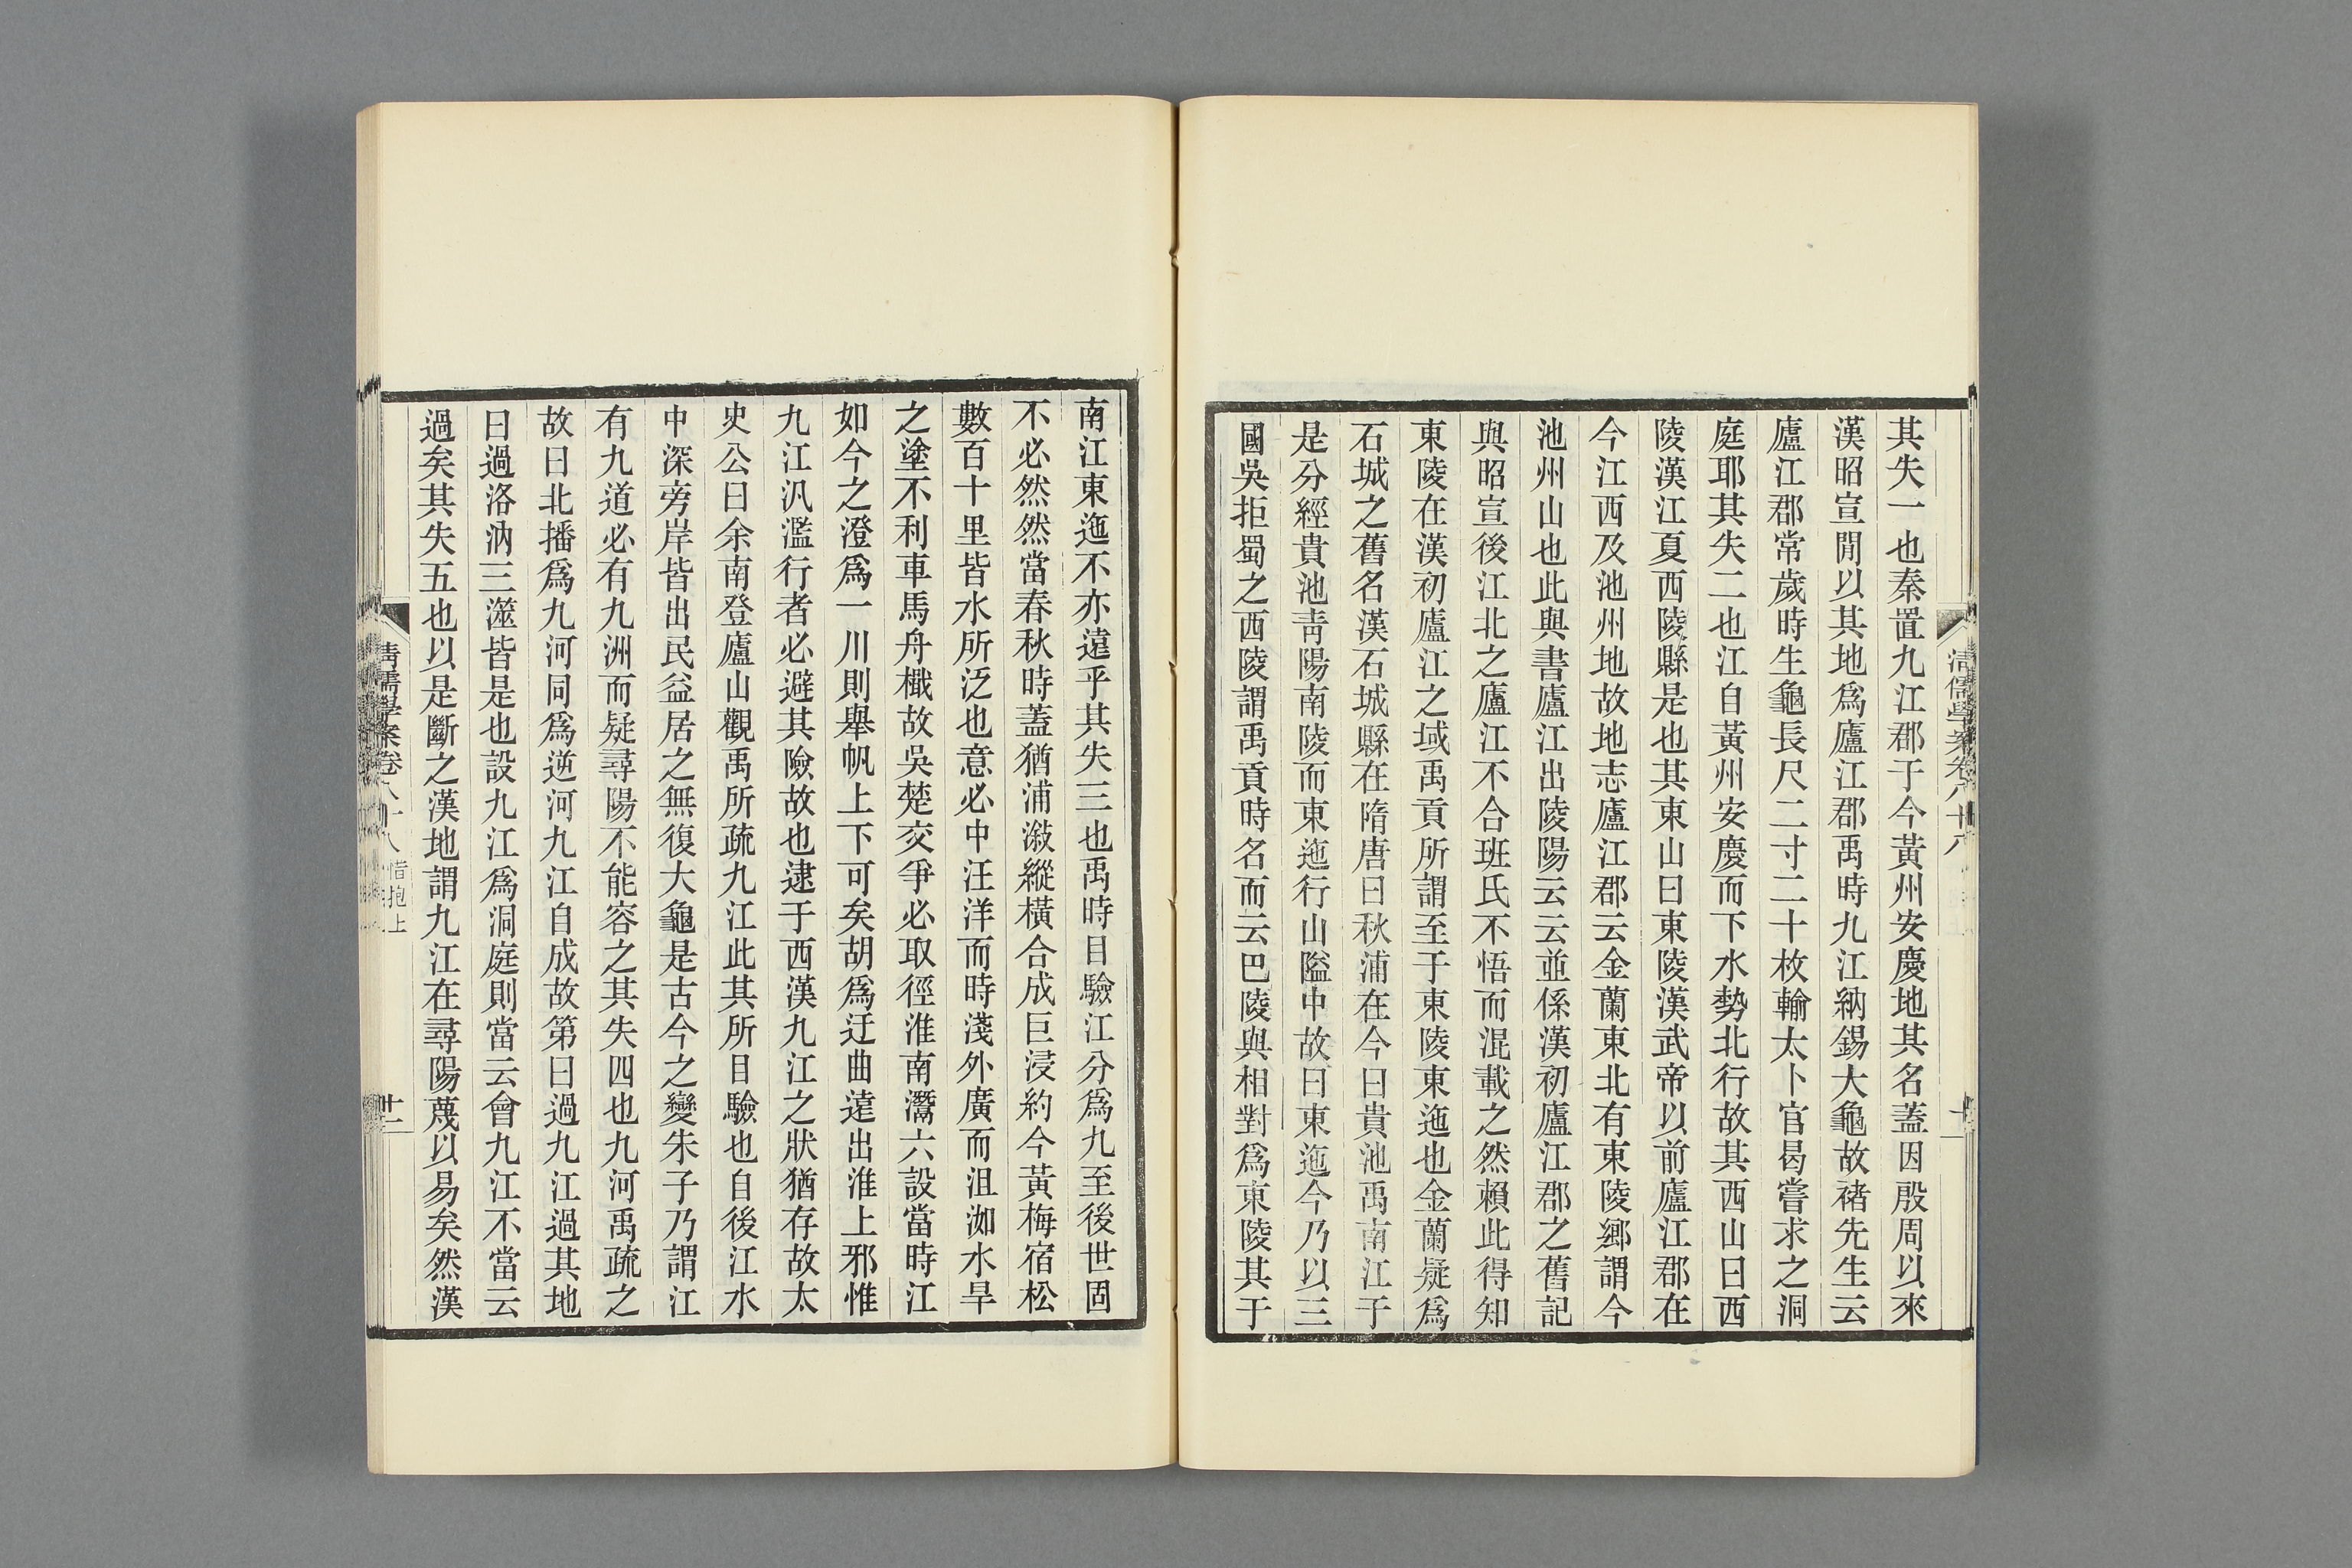 其失一也秦置九江郡于今黃州安慶地其名蓋因殷周以來
漢昭宣閒以其地爲廬江郡禹時九江納錫大龜故褚先生云
廬江郡常歲時生龜長尺二寸二十枚輸太卜官曷嘗求之洞
庭耶其失二也江自黃州安慶而下水勢北行故其西山曰西
陵漢江夏西陵縣是也其東山曰東陵漢武帝以前廬江郡在
今江西及池州地故地志廬江郡云金蘭東北有東陵鄉謂今
池州山也此與書廬江出陵陽云云並係漢初廬江郡之舊記
與昭宣後江北之廬江不合班氏不悟而混載之然賴此得知
東陵在漢初廬江之域禹貢所謂至于東陵東迤也金蘭疑爲
石城之舊名漢石城縣在隋唐曰秋浦在今曰貴池禹南江于
是分經貴池靑陽南陵而東迤行山隘中故曰東迤今乃以三
國吳拒蜀之西陵謂禹貢時名而云巴陵與相對爲東陵其于
清儒學案卷八十八
南江東迤不亦遠乎其失三也禹時目驗江分爲九至後世固
不必然然當春秋時蓋猶浦漵縱橫合成巨浸約今黃梅宿松
數百十里皆水所泛也意必中汪洋而時淺外廣而沮洳水旱
之塗不利車馬舟檝故吳楚交爭必取徑淮南灊六設當時江
如今之澄爲一川則舉帆上下可矣胡爲迂曲遠出淮上邪惟
九江汎濫行者必避其險故也逮于西漢九江之狀猶存故太
史公曰余南登廬山觀禹所疏九江此其所目驗也自後江水
中深旁岸皆出民益居之無復大龜是古今之變朱子乃謂江
有九道必有九洲而疑尋陽不能容之其失四也九河禹疏之
故曰北播爲九河同爲逆河九江自成故第曰過九江過其地
曰過洛汭三澨皆是也設九江爲洞庭則當云會九江不當云
過矣其失五也以是斷之漢地謂九江在尋陽蔑以易矣然漢
清儒學案卷八十八 惜抱上 廿一